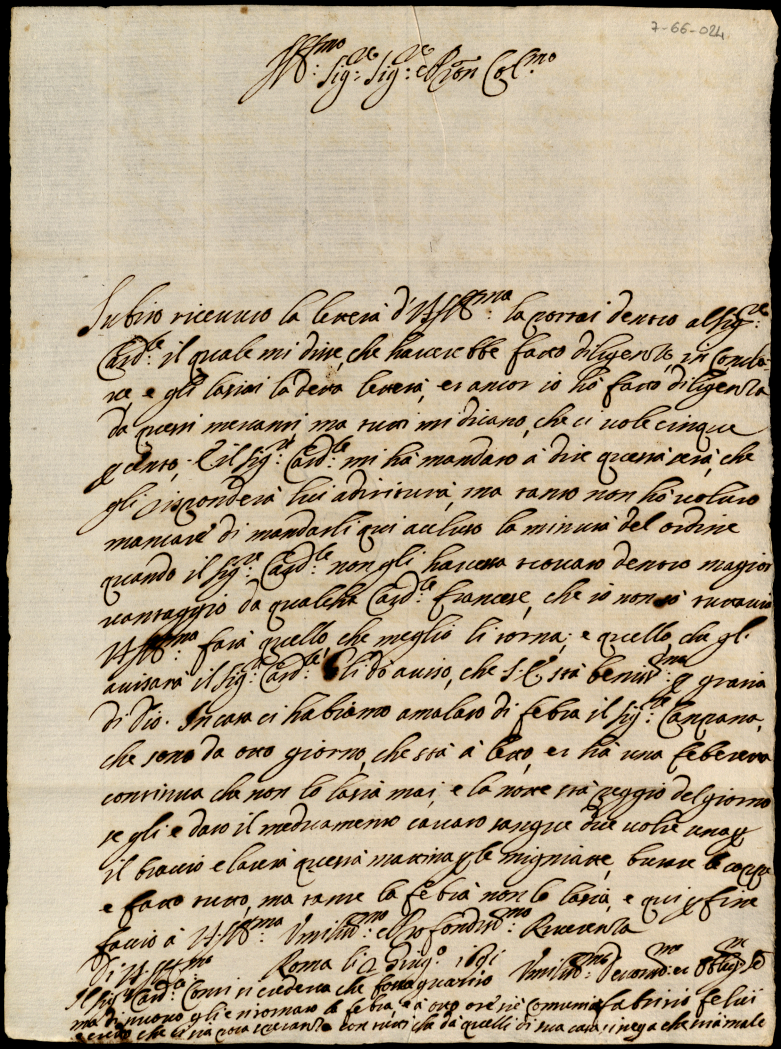 7-66-024.
Ill:mo Sig:re Sig:re e Pron Col:mo
Subito riceuuto la lettera d'V.S.Ill:ma la portai dentro al Sig:re
Card:le il quale mi disse, che hauerebbe fatto diligenza in Concla-
ue, e gli lasiai la deta lettera, et ancor io hò fatto diligenza
da questi mercanti ma tutti mi dicano, che ci uole cinque
p cento, e il Sig:re Card:le mi hà mandato à dire questa sera, che
gli risponderà lui adiritura, ma tanto non hò uoluto
mancare di mandarli qui acluso la minuta del ordine
quando il Sig:re Card:le non gli hauessa trouato dentro magior
vantaggio da qualche Card:le francese, che io non sò tuttauia
V.S.Ill:ma farà quello, che meglio li torna, e quello, che gli
auisarà il Sig:re Card:le. Gli dò auiso, che S.E. stà beniss:mo p grazia
di Dio. In casa ci habiamo amalato di febra il Sig:re
che sono da otto giorno, che stà à letto, et hà una feberetta
continua che non lo lasia mai, e la notte stà peggio del giorno
se gli è dato il medicamento cauato sangue due uolte una p
il braccio e l'altra questa mattina p le migniatte, butate le coppe
e fatto tutto, ma tanto la febra non lo lasia, e qui p fine
faccio à V.S.Ill:ma Umiliss:mo e Profondiss:mo Riuerenza
Di V.S.Ill:ma Roma li Giug:o 1691 Umiliss:mo Deuotiss:mo et Oblig:mo Se
Il Sig:re Card: Conti si credeua che fosse guarito Fabrizio felici
ma di nuouo gli è ritornato la febra,
e credo che con tutti che da quelli di sua casa si nega che stia male